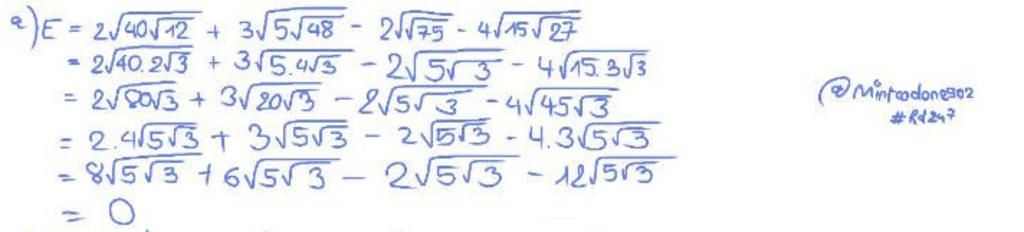 a) E = 2√(40√12) + 3√(5√48) - 2√(√75) - 4√(15√27)
= 2√(40.2√3) + 3√(5.4√3) - 2√(5√3) - 4√(15.3√3)
= 2√(80√3) + 3√(20√3) - 2√(5√3) - 4√(45√3)
= 2.4√(5√3) + 3√(5√3) - 2√(5√3) - 4.3√(5√3)
= 8√(5√3) + 6√(5√3) - 2√(5√3) - 12√(5√3)
= 0
#Rd247